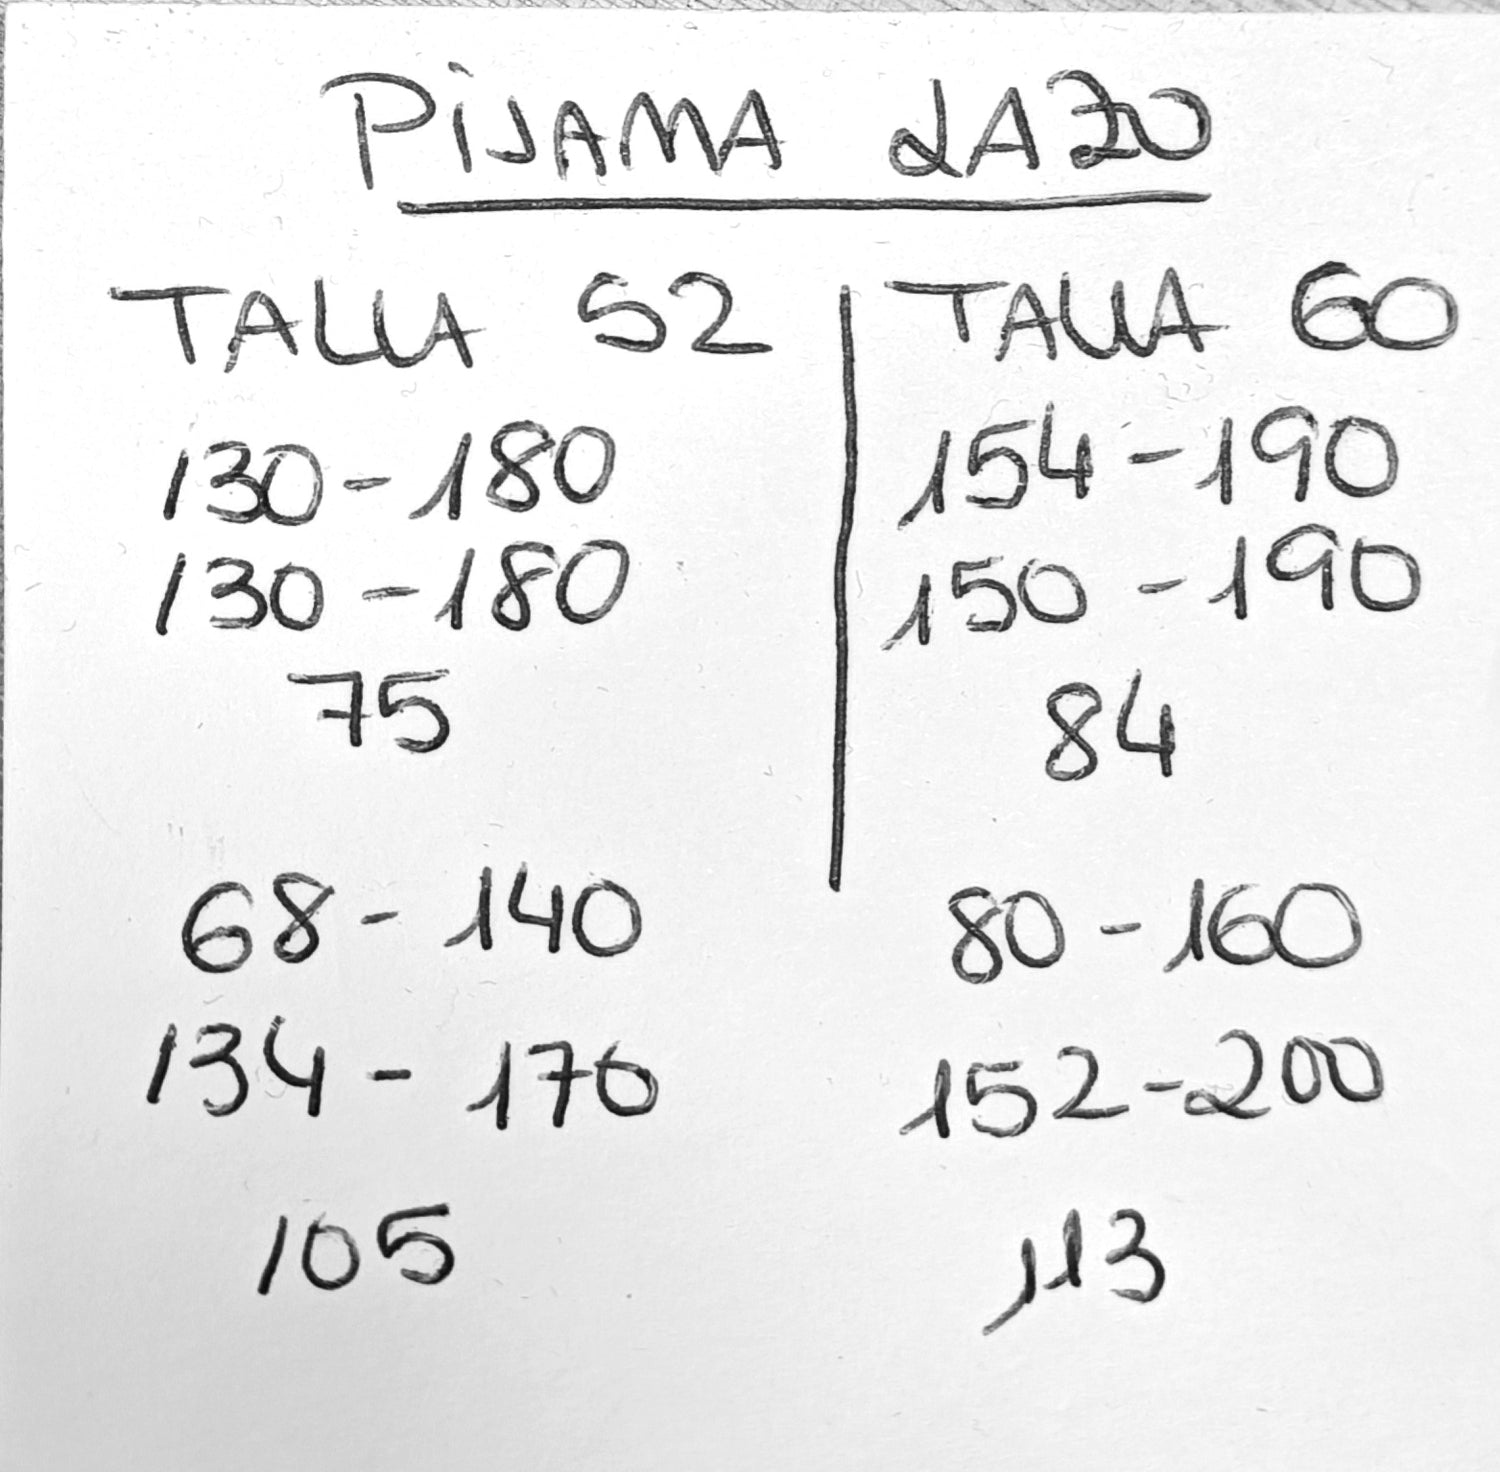 PIJAMA LAZO
TALLA 52
130-180
130-180
75
68-140
134-170
105
TALLA 60
154-190
150-190
84
80-160
152-200
113